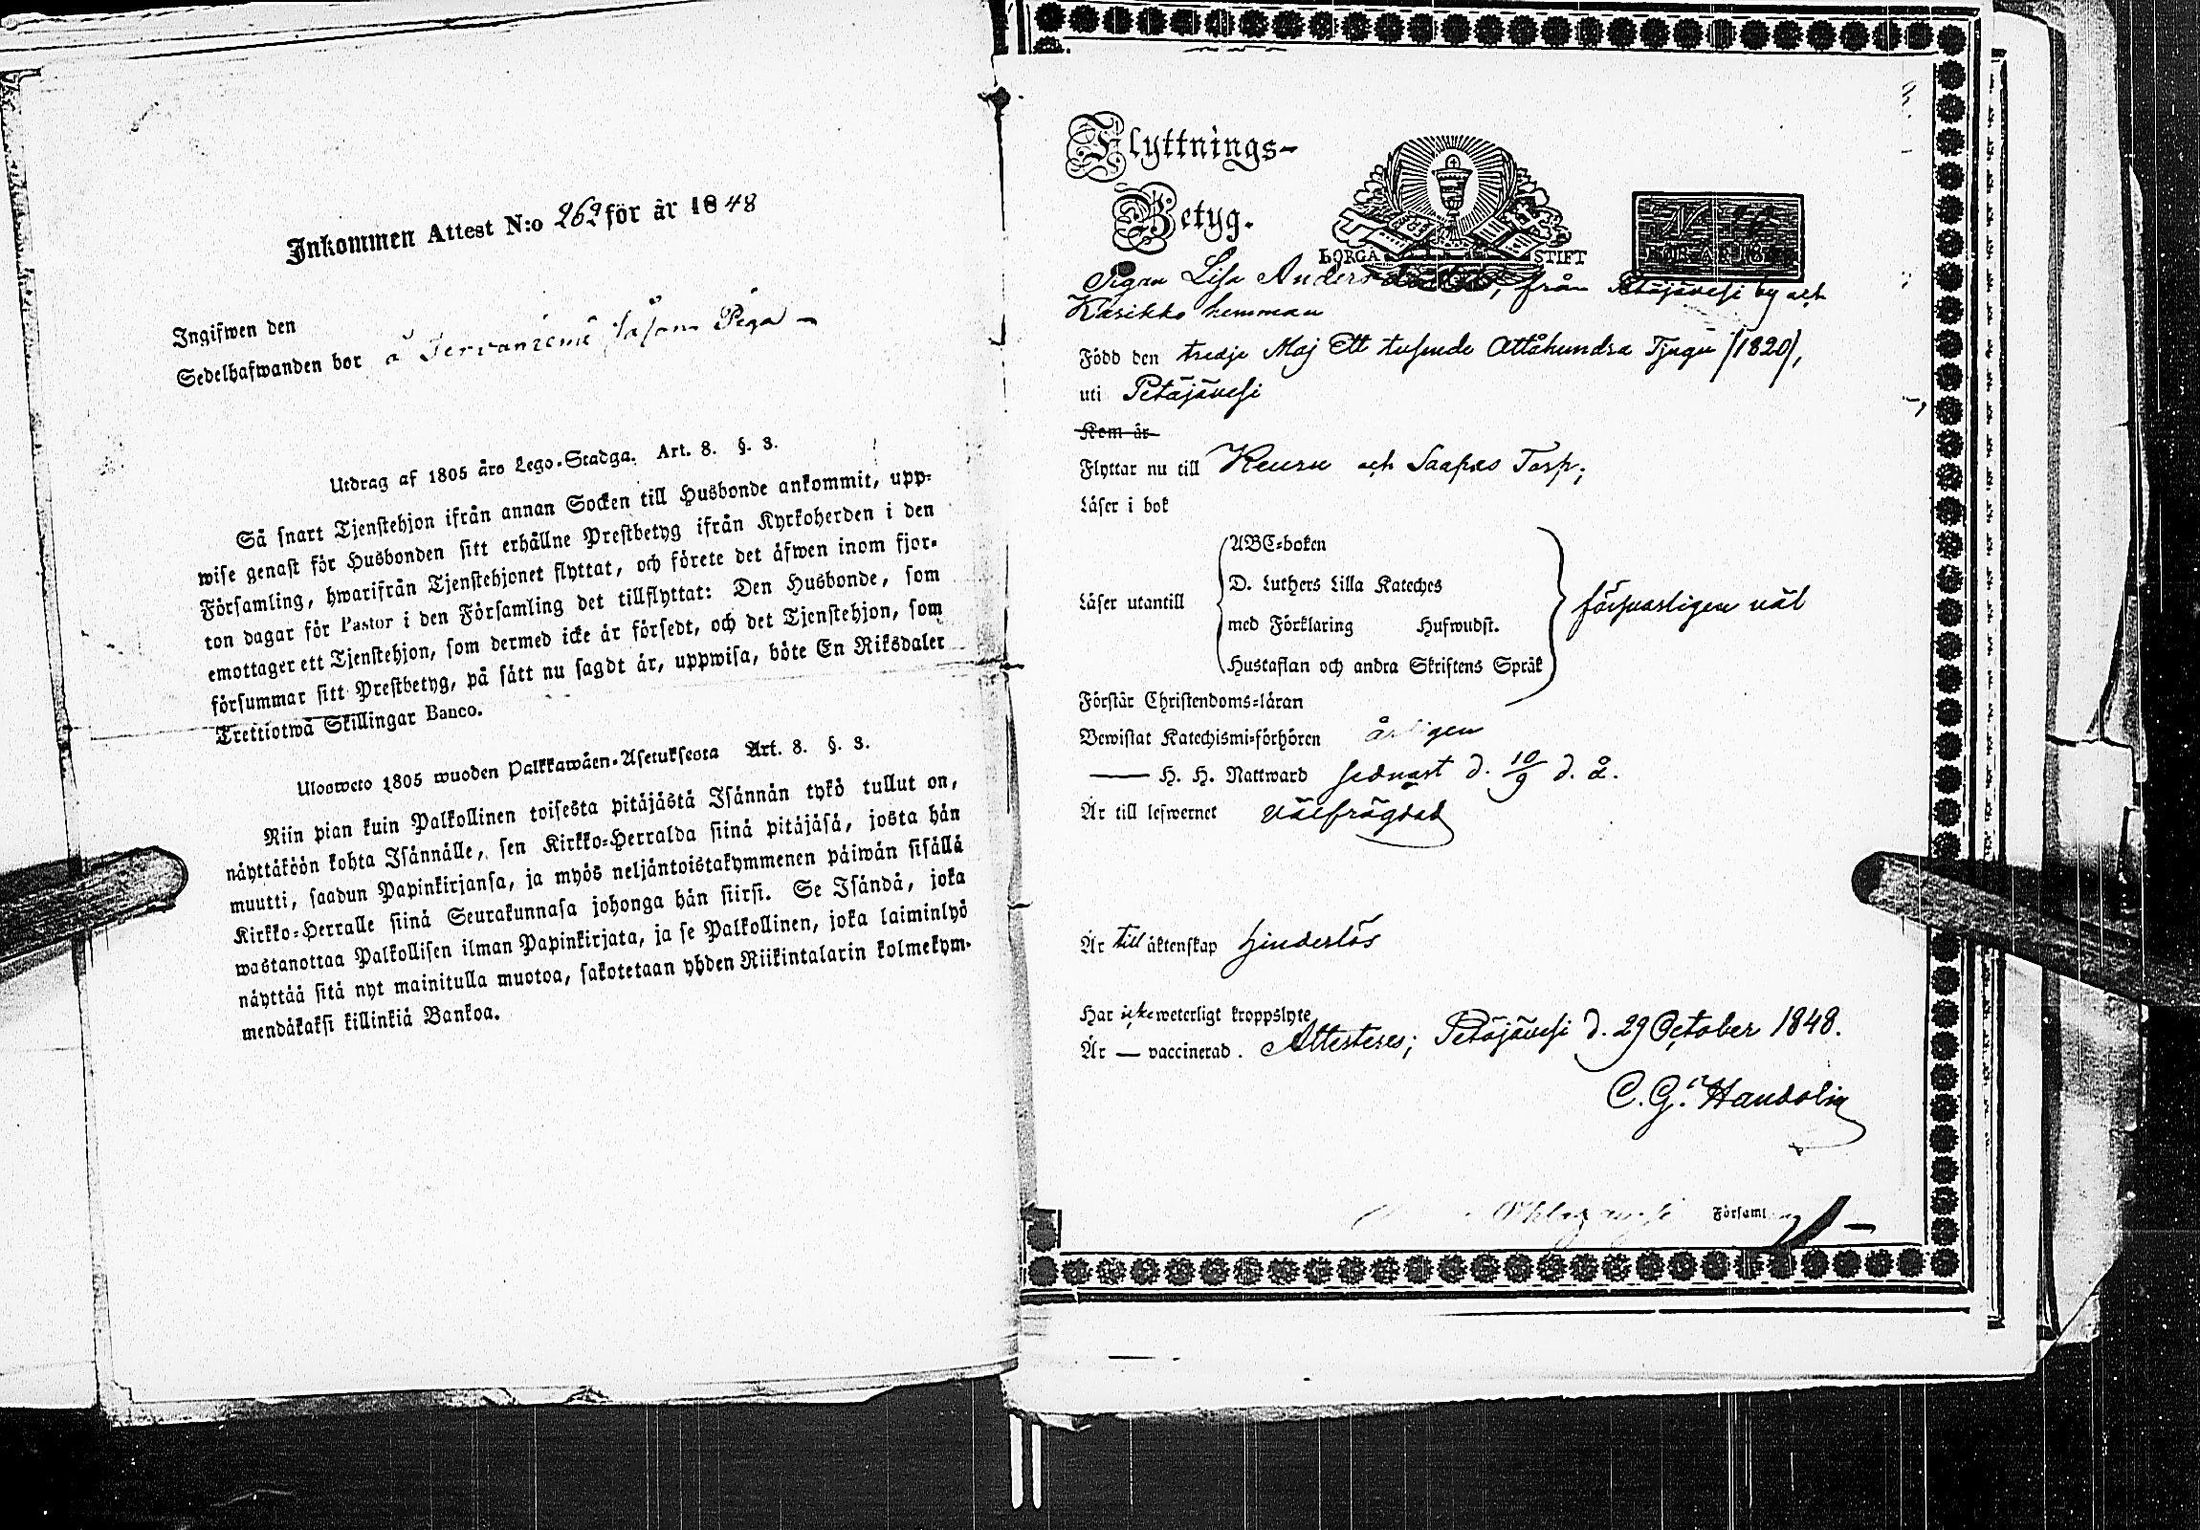 Inkommen Attest N:o 262 för år 1848
Ingifwen den
Sedelhafwanden bor å Tervaniemi Piga
Utdrag af 1805 års Lego-Stadga. Art. 8. §. 3.
Så snart Tjenstehjon ifrån annan Socken till Husbonde ankommit, upp-
wise genast för Husbonden sitt erhållne Prestbetyg ifrån Kyrkoherden i den
Församling, hwarifrån Tjenstehjonet flyttat, och förete det äfwen inom fjor-
ton dagar för Pastor i den Församling det tillflyttat: Den Husbonde, som
emottager ett Tjenstehjon, som dermed icke är försedt, och det Tjenstehjon, som
försummar sitt Prestbetyg, på sätt nu sagdt är, uppwisa, böte En Riksdaler
Trettiotwå Skillingar Banco.
Ulosweto 1805 wuoden Palkkawäen-Asetuksesta Art. 8. §. 3.
Niin pian kuin Palkollinen toisesta pitäjästä Isännän tykö tullut on,
näyttäköön kohta Isännälle, sen Kirkko-Herralda siinä pitäjäsä, josta hän
muutti, saadun Papinkirjansa, ja myös neljäntoistakymmenen päiwän sisällä
Kirkko-Herralle siinä Seurakunnasa johonga hän siirsi. Se Isändä, joka
wastanottaa Palkollisen ilman Papinkirjata, ja se Palkollinen, joka laiminlyö
näyttää sitä nyt mainitulla muotoa, sakotetaan yhden Riikintalarin kolmekym-
mendäkaksi killinkiä Bankoa.
Flyttnings-
Betyg.
BORGA STIFT
Pigan Lisa Andersdotter, från Petäjävesi by och
Karikko hemman
Född den tredje Maj Ett tusende Attahundra Tjugu /1820/,
uti Petäjävesi
Kom år
Flyttar nu till Keuru och Saapas Torp;
Läser i bok
Läser utantill
ABC-boken
D. Luthers Lilla Kateches
med Förklaring Hufwudst.
Hustaflan och andra Skriftens Språk
försvarligen väl
Förstår Christendoms-läran
Bewistat Katechismi-förhören årligen
H. H. Nattward sednast d. 10/9 d. å.
Är till lefwernet välfrägdad
Är till äktenskap hinderlös
Har icke weterligt kroppslyte
Är — vaccinerad. Attesteres; Petäjävesi d. 29 October 1848.
C. G. Handolin
Församl